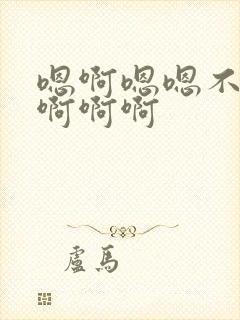 嗯啊嗯嗯不
啊啊啊
盧馬